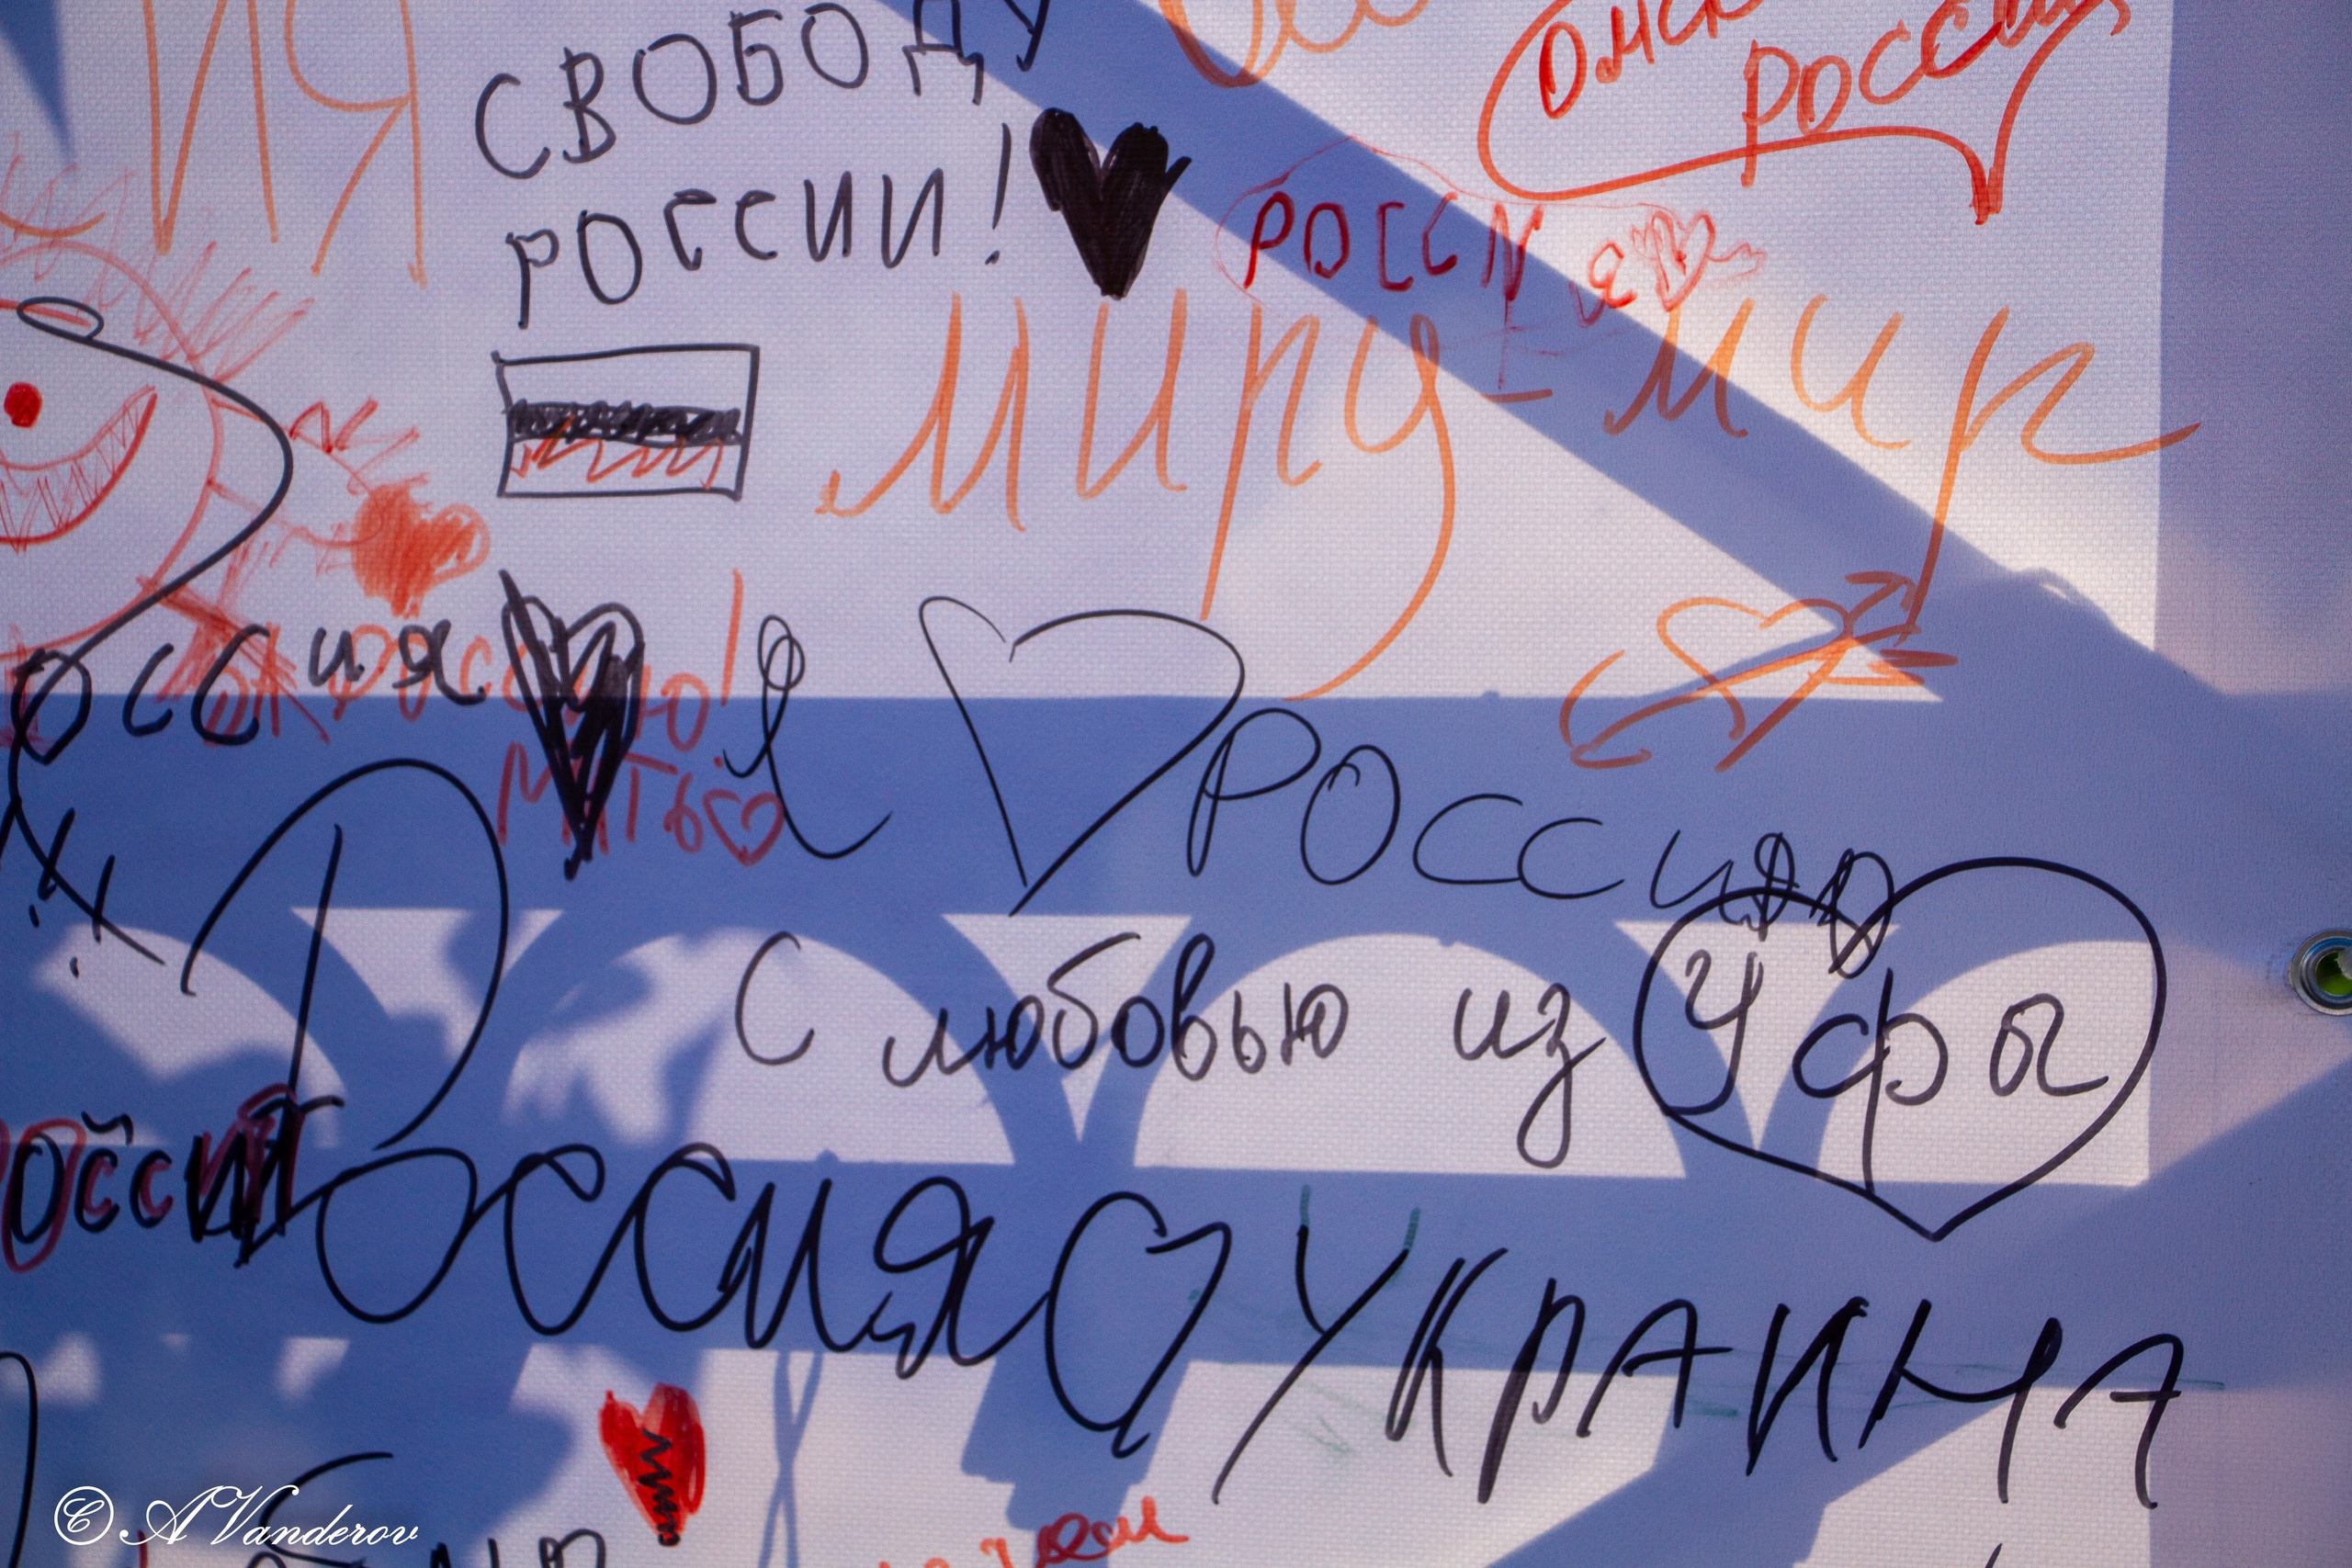 ИЯ
СВОБОДУ
РОССИИ!
ОМСК
РОССИЯ
РОССИЯ
миру - мир
Россия
РОССИЮ!
МАТЬ
Я РОССИЮ
С любовью из Уфы
Россия
Россия УКРАИНА
© AVanderov